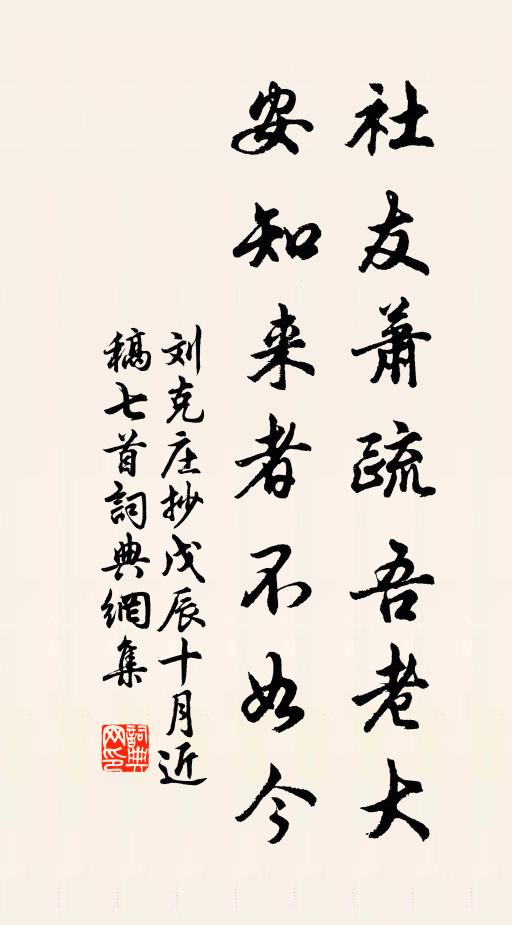 社友萧疏吾老大
安知来者不如今
刘克庄抄戊辰十月近
稿七首詞典網集
詞典网印